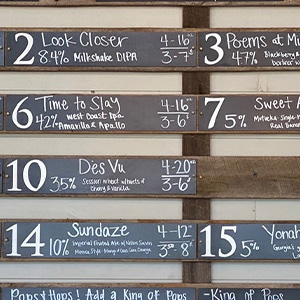 2 Look Closer 4-16
8.4% Milkshake DIPA 3-7
3 Poems at Mi
4.7% Blackberry &
6 Time to Slay 4-16
4.2% West Coast Ipa 3-6
Amarillo & Apollo
7 Sweet A
5% Motueka Single
Real Banan
10 Des Vu 4-20
3.5% Session wheat w/ hints of 3-6
Cherry & Vanilla
14 Sundaze 4-12
10% Imperial 8
15 Yonah
5%
Pops & Hops! Add a King of Pops
-King of Pops